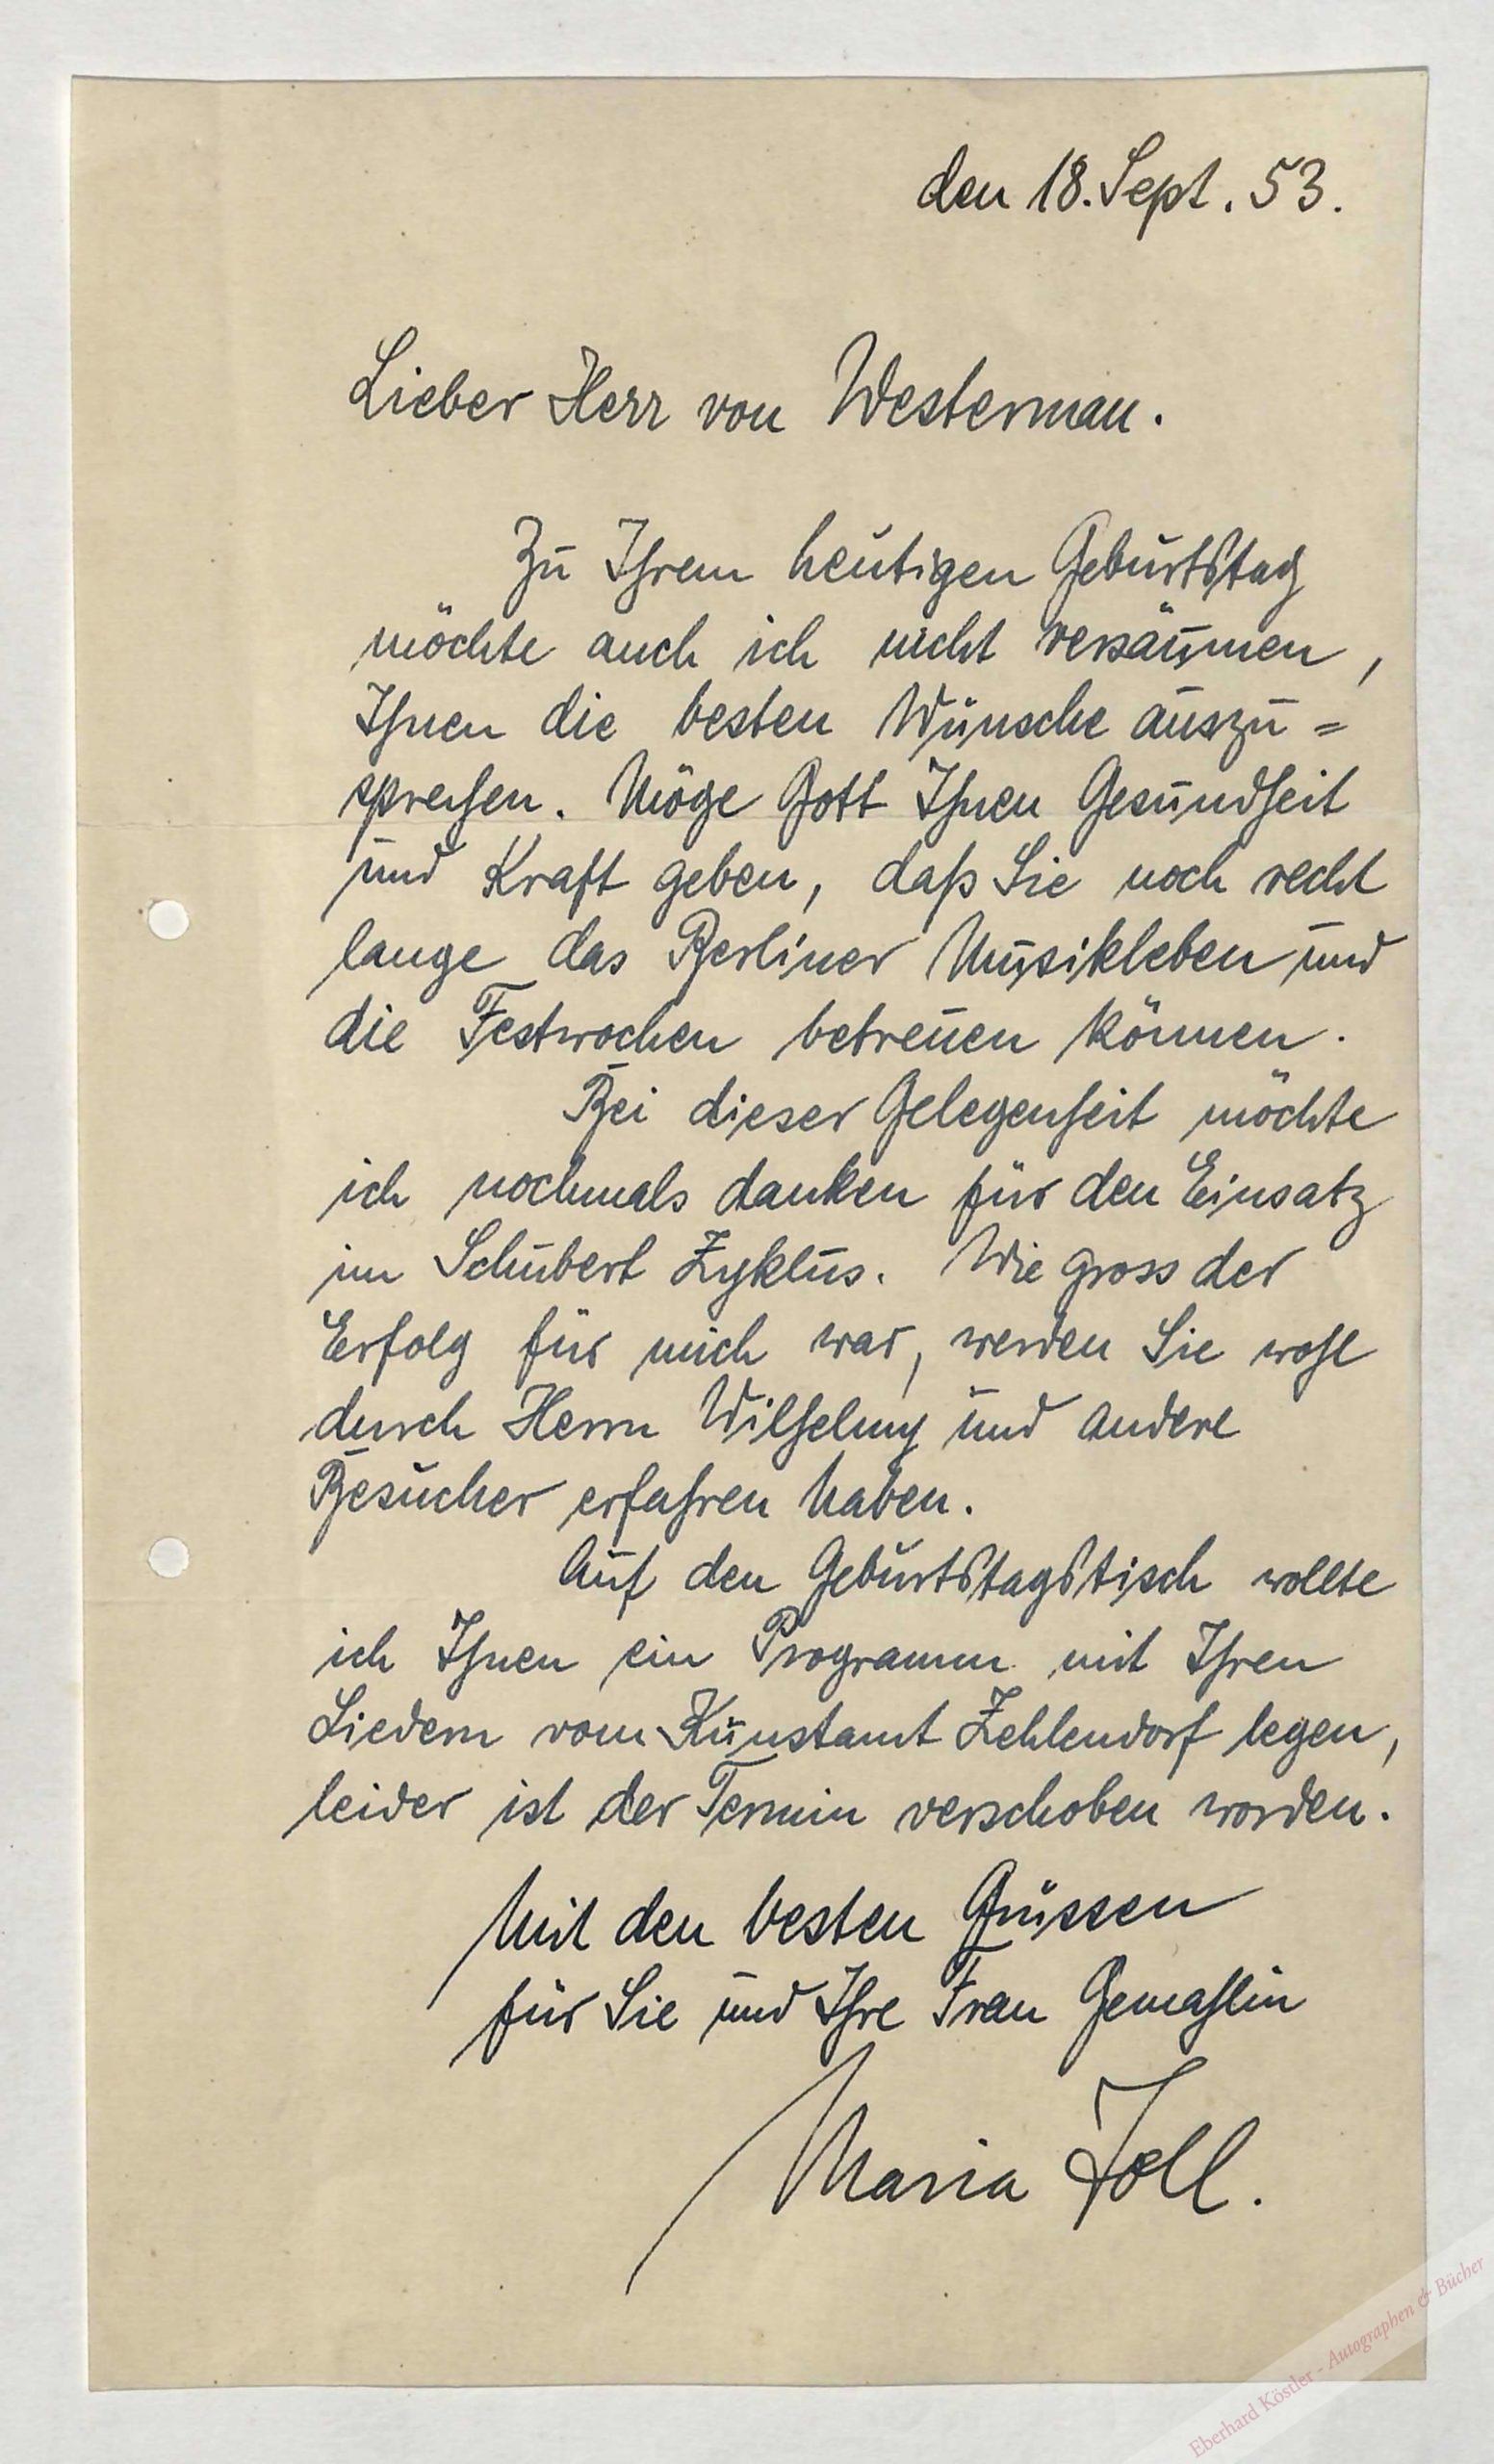 den 18. Sept. 53.
Lieber Herr von Westerman.
Zu Ihrem heutigen Geburtstag
möchte auch ich nicht versäumen,
Ihnen die besten Wünsche auszu=
sprechen. Möge Gott Ihnen Gesundheit
und Kraft geben, daß Sie noch recht
lange das Berliner Musikleben und
die Festwochen betreuen können.
Bei dieser Gelegenheit möchte
ich nochmals danken für den Einsatz
im Schubert Zyklus. Wie gross der
Erfolg für mich war, werden Sie wohl
durch Herrn und andere
Besucher erfahren haben.
Auf den Geburtstagstisch wollte
ich Ihnen ein Programm mit Ihren
Liedern vom Kunstamt Zehlendorf legen,
leider ist der Termin verschoben worden.
Mit den besten Grüssen
für Sie und Ihre Frau Gemahlin
Maria
Eberhard Köstler - Autographen & Bücher